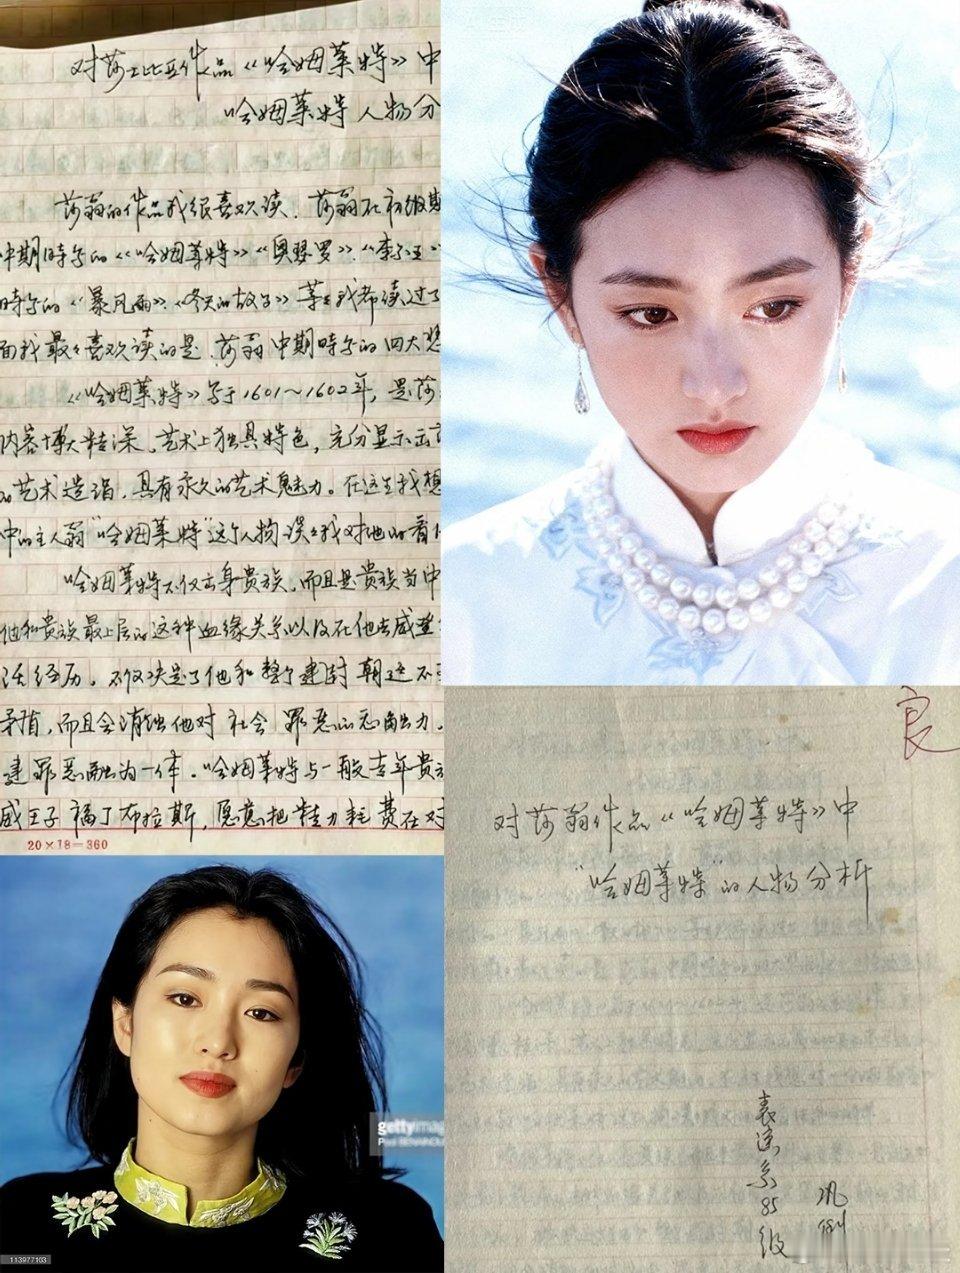 对莎士比亚作品《哈姆莱特》中
哈姆莱特人物分
莎翁的作品我很喜欢读.莎翁在初级期
中期时写的《哈姆莱特》《奥瑟罗》.《李尔王
时写的《暴风雨》.《冬天的故事》等等我都读过了
面我最喜欢读的是.莎翁中期时写的四大悲
《哈姆莱特》写于1601～1602年,是莎
内容博大精深.艺术上独具特色,充分显示出
的艺术造诣,具有永久的艺术魅力.在这里我想
中的主人翁"哈姆莱特"这个人物谈谈我对他的看
哈姆莱特不仅出身贵族.而且是贵族当中
他和贵族最上层的这种血缘关系以及在他去威登
活经历.不仅决定了他和整个建封朝廷不
矛盾,而且会消蚀他对社会罪恶的
建罪恶融为一体.哈姆莱特与一般青年贵
威王子福丁布拉斯,愿意把精力耗费在对
20×18=360
良
对莎翁作品《哈姆莱特》中
"哈姆莱特"的人物分析
表演系85级
巩俐
gettyimag
Paul BENAROU
113977103